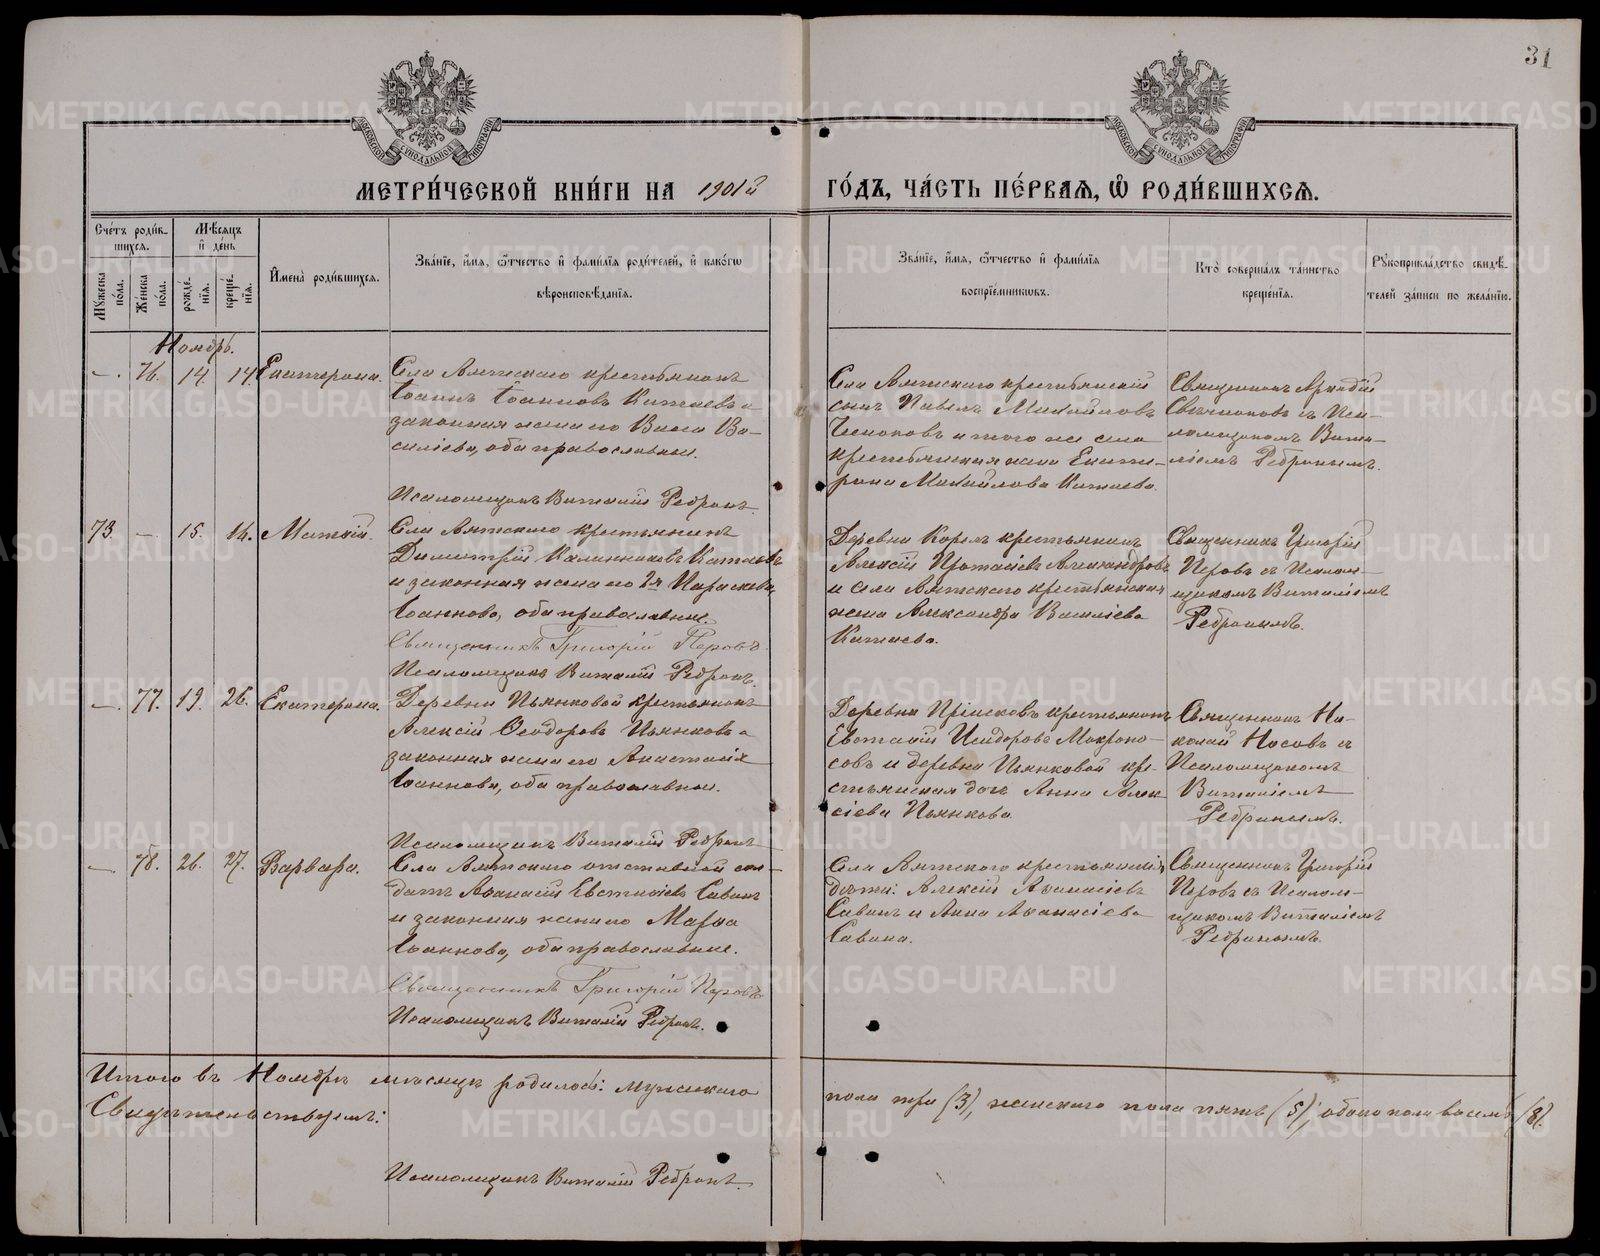 31
МЕТРИ́ЧЕСКОЙ КНИ́ГИ НА 1901й ГО́ДЪ, ЧА́СТЬ ПЕ́РВАЯ, Ѿ РОДИ́ВШИХСЯ.
Сче́тъ роди́в-
шихся.
Мѣ́сяцъ
и҆ де́нь
Мꙋ́жеска по́ла.
Же́нска по́ла.
рожде́-
нїя.
креще́-
нїя.
И҆мена̀ роди́вшихся.
Зва́нїе, и҆́мя, ѻ҆́тчество и҆ фами́лїя роди́телей, и҆ како́гѡ
вѣроисповѣ́данїя.
Зва́нїе, и҆́мя, ѻ҆́тчество и҆ фами́лїя
воспрїе́мникѡвъ.
Кто̀ соверша́лъ та́инство
креще́нїя.
Рꙋкоприкла́дство свидѣ́-
телей за́писи по жела́нїю.
Ноябрь.
—. 76. 14. 14. Екатерина.
Села Аятскаго крестьянинъ
Іоаннъ Іоанновъ Китаевъ и
законная жена его Васса Ва-
силіева, оба православные.
Псаломщикъ Виталій Ребринъ.
Села Аятскаго крестьянскій
сынъ Павелъ Михайловъ
Чесноковъ и того же села
крестьянская жена Екате-
рина Михайлова Китаева.
Священникъ Аркадій
съ Пса-
ломщикомъ Вита-
ліемъ Ребринымъ.
73. —. 15. 16. Матѳій.
Села Аятскаго крестьянинъ
Димитрій Калинниковъ Китаевъ
и законная жена его 2я Параскева
Іоаннова, оба православные.
Священникъ Григорій Перовъ.
Псаломщикъ Виталій Ребринъ.
Деревни Корелъ крестьянинъ
Алексій Протасіевъ Александровъ
и села Аятскаго крестьянская
жена Александра Василіева
Китаева.
Священникъ Григорій
Перовъ съ Псалом-
щикомъ Виталіемъ
Ребринымъ.
—. 77. 19. 26. Екатерина.
Деревни Пьянковой крестьянинъ
Алексій Ѳеодоровъ Пьянковъ и
законная жена его Анастасія
Іоаннова, оба православные.
Псаломщикъ Виталій Ребринъ
Деревни Пріисковъ крестьянинъ
Евстафій Исидоровъ Мокроно-
совъ и деревни Пьянковой кре-
стьянская дочь Анна Алек-
сіева Пьянкова.
Священникъ Ни-
колай Носовъ съ
Псаломщикомъ
Виталіемъ
Ребринымъ.
—. 78. 26. 27. Варвара.
Села Аятскаго отставной сол-
датъ Аѳанасій Евстафіевъ Савинъ
и законная жена его Марѳа
Іоаннова, оба православные.
Священникъ Григорій Перовъ
Псаломщикъ Виталій Ребринъ.
Села Аятскаго крестьянскія
дѣти: Алексій Аѳанасіевъ
Савинъ и Анна Аѳанасіева
Савина.
Священникъ Григорій
Перовъ съ Псалом-
щикомъ Виталіемъ
Ребринымъ.
Итого въ Ноябрѣ мѣсяцѣ родилось: мужескаго пола три (3), женскаго пола пять (5), обоего пола восемь (8).
Свидѣтельствуемъ:
Псаломщикъ Виталій Ребринъ.
METRIKI.GASO-URAL.RU